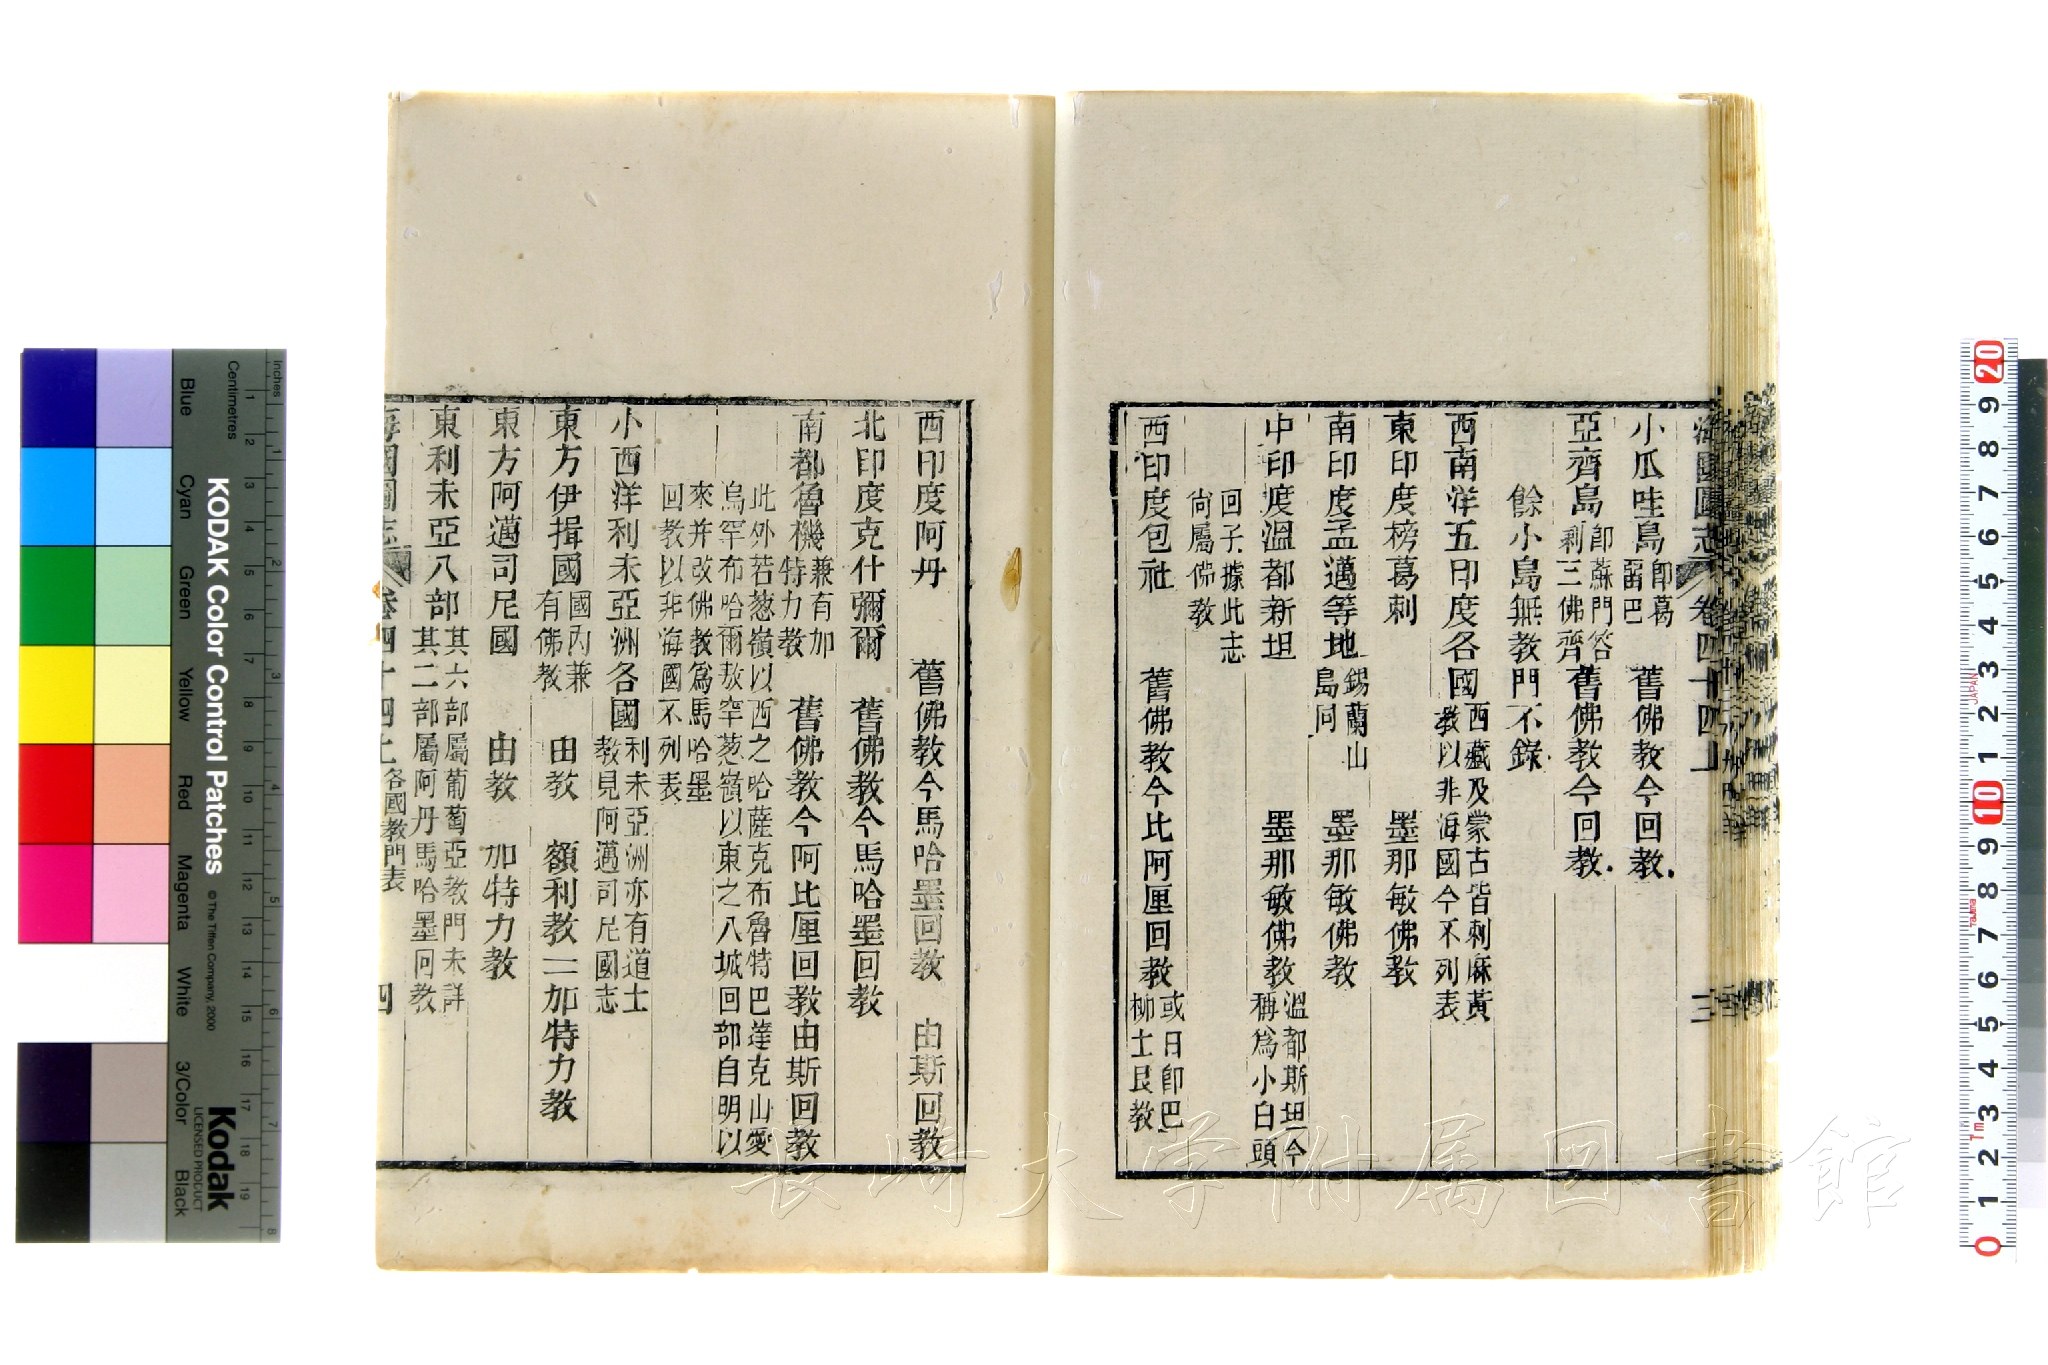 海國圖志 卷四十四上 三
小瓜哇島 即葛 畱巴 舊佛教今回教
亞齊島 即蘇門答 剌三佛齊 舊佛教今回教
餘小島無教門不錄
西南洋五印度各國 西藏及蒙古皆刺麻黃 教以非海國今不列表
東印度榜葛刺 墨那敏佛教
南印度孟邁等地 錫蘭山 島同 墨那敏佛教
中印度溫都新坦 墨那敏佛教 溫都斯坦今 稱為小白頭
回子據此志 尙屬佛教
西印度包社 舊佛教今比阿厘回教 或曰即巴 柳士艮教
西印度阿丹 舊佛教今馬哈墨回教 由斯回教
北印度克什彌爾 舊佛教今馬哈墨回教
南都魯機 兼有加 特力教 舊佛教今阿比厘回教由斯回教
此外若葱嶺以西之哈薩克布魯特巴達克山愛
烏罕布哈爾敖罕葱嶺以東之八城回部自明以
來并改佛教為馬哈墨
回教以非海國不列表
小西洋利未亞洲各國 利未亞洲亦有道士 教見阿邁司尼國志
東方伊揖國 國內兼 有佛教 由教 額利教 加特力教
東方阿邁司尼國 由教 加特力教
東利未亞八部 其六部屬葡萄亞教門未詳 其二部屬阿丹馬哈墨回教
海國圖志 卷四十四上 各國教門表 四
長崎大学附属図書館
KODAK Color Control Patches
© The Tiffen Company, 2000
Kodak
LICENSED PRODUCT
Inches
Centimetres
Blue
Cyan
Green
Yellow
Red
Magenta
White
3/Color
Black
1 2 3 4 5 6 7 8 9 10 11 12 13 14 15 16 17 18 19
1 2 3 4 5 6 7 8
20 9 8 7 6 5 4 3 2 1 10 9 8 7 6 5 4 3 2 1 0
JAPAN